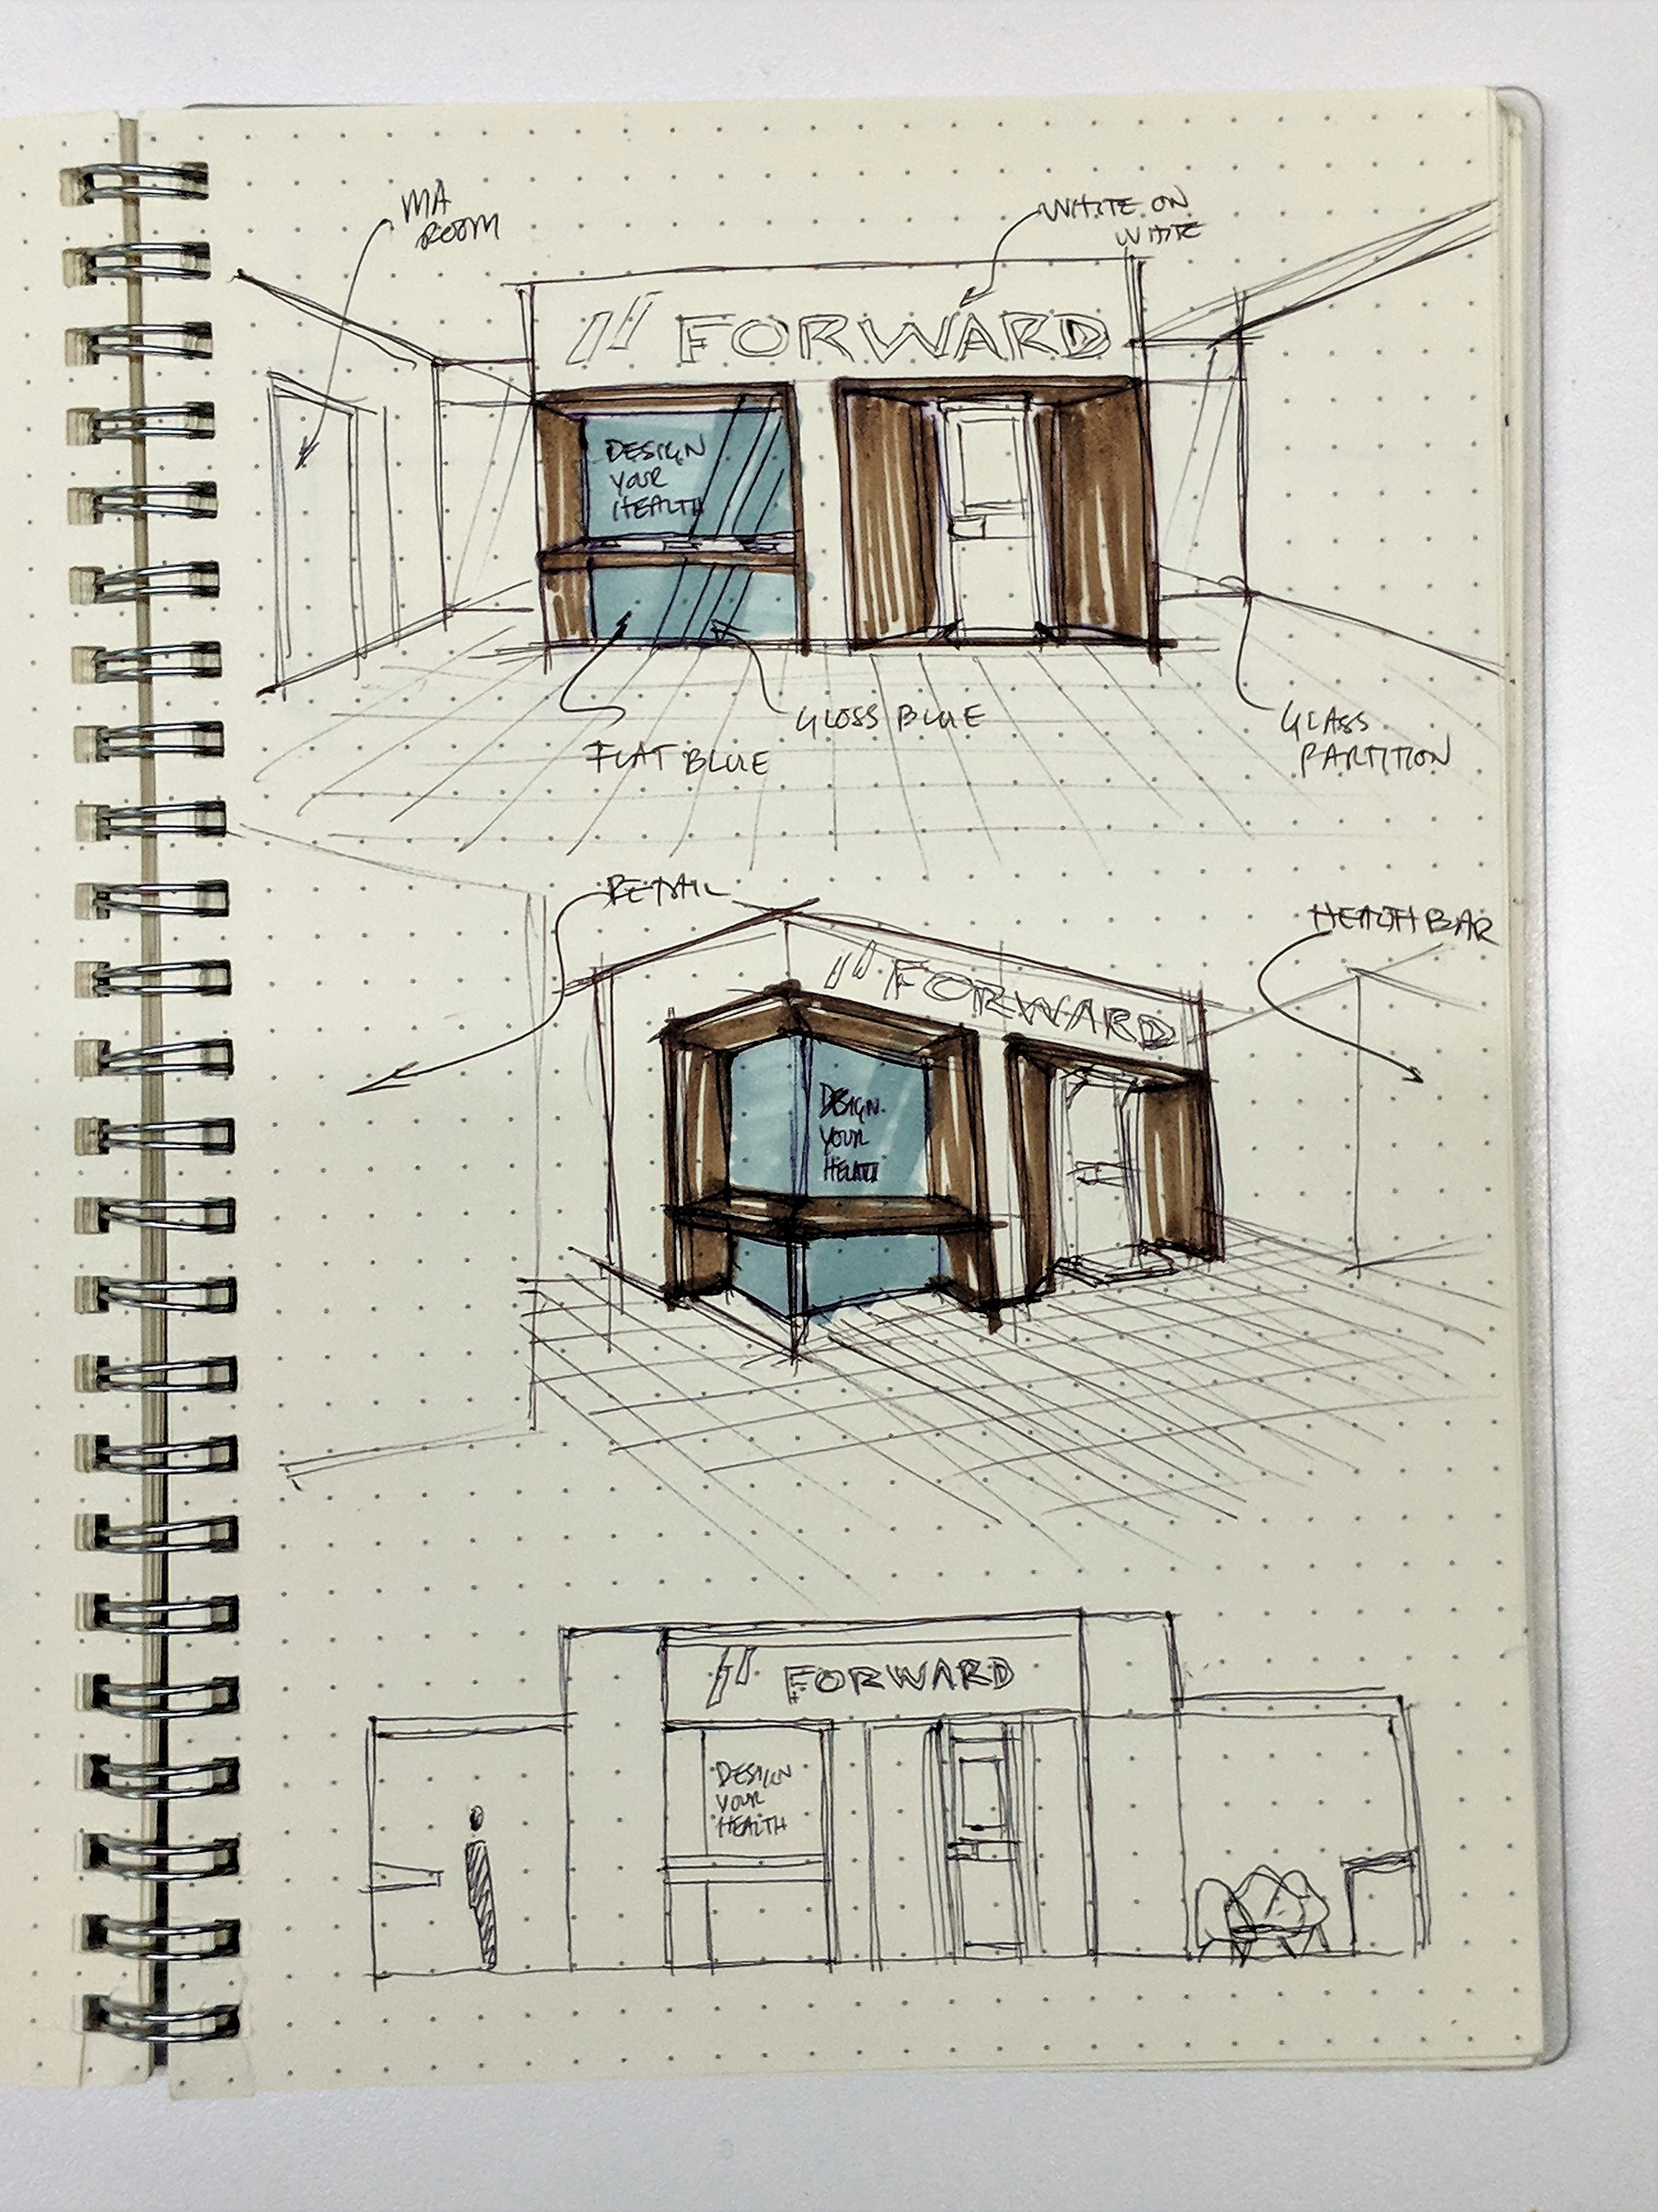 MA
ROOM
WHITE ON
WHITE
FORWARD
DESIGN
YOUR
HEALTH
GLOSS BLUE
FLAT BLUE
GLASS
PARTITION
RETAIL
HEALTH BAR
FORWARD
DESIGN
YOUR
HEALTH
FORWARD
DESIGN
YOUR
HEALTH